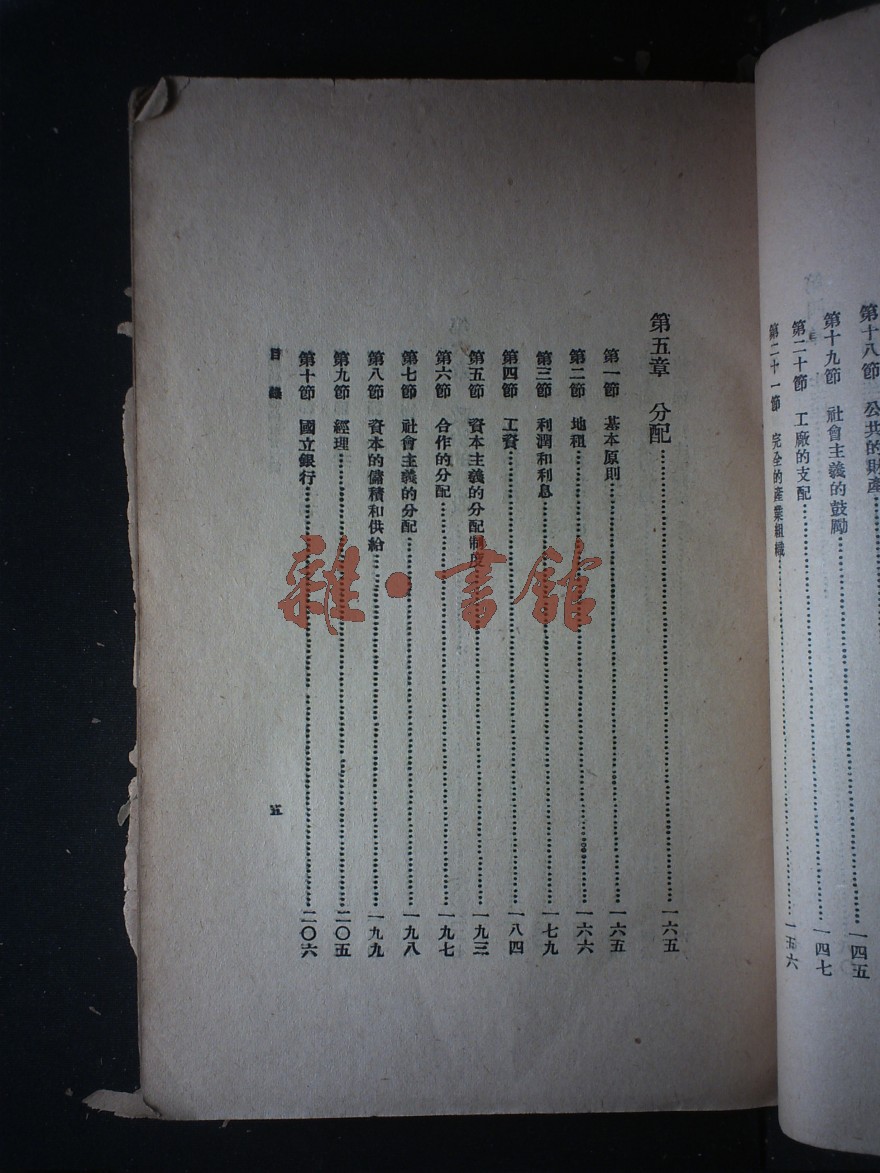 第十八節　公共的財產
第十九節　社會主義的鼓勵……一四七
第二十節　工廠的支配
第二十一節　完全的產業組織……一五六
第五章　分配……一六五
第一節　基本原則……一六五
第二節　地租……一六六
第三節　利潤和利息……一七九
第四節　工資……一八四
第五節　資本主義的分配制度……一九三
第六節　合作的分配……一九七
第七節　社會主義的分配……一九八
第八節　資本的儲積和供給……一九九
第九節　經理……二〇五
第十節　國立銀行……二〇六
目錄　五
雜·書館